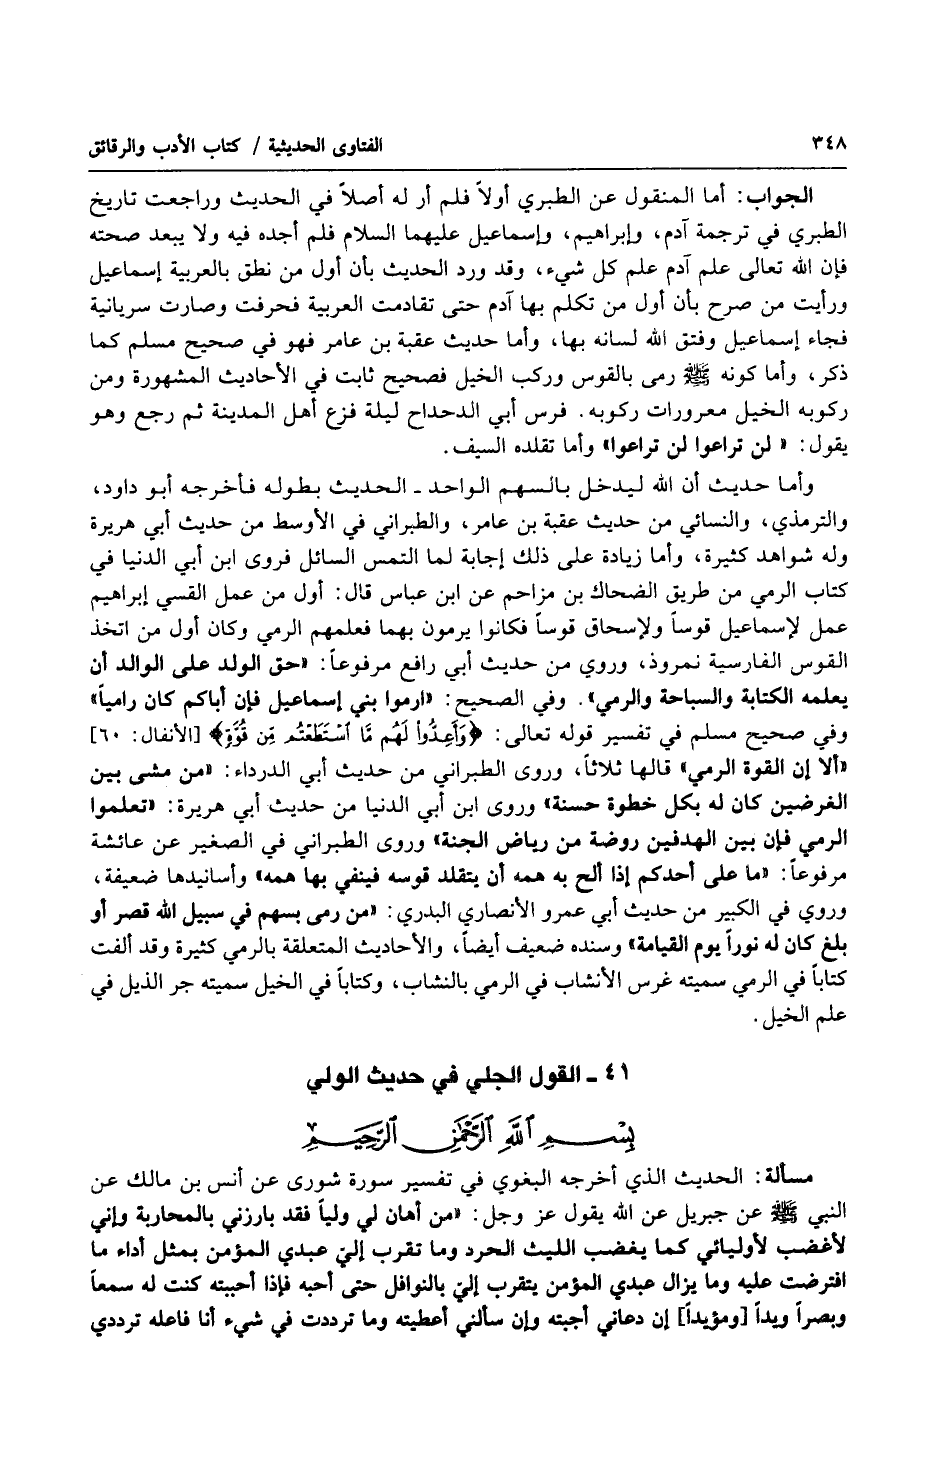 ٣٤٨ الفتاوى الحديثية / كتاب الأدب والرقائق
الجواب: أما المنقول عن الطبري أولاً فلم أر له أصلاً في الحديث وراجعت تاريخ
الطبري في ترجمة آدم، وإبراهيم، وإسماعيل عليهما السلام فلم أجده فيه ولا يبعد صحته
فإن الله تعالى علم آدم علم كل شيء، وقد ورد الحديث بأن أول من نطق بالعربية إسماعيل
ورأيت من صرح بأن أول من تكلم بها آدم حتى تقادمت العربية فحرفت وصارت سريانية
فجاء إسماعيل وفتق الله لسانه بها، وأما حديث عقبة بن عامر فهو في صحيح مسلم كما
ذكر، وأما كونه ﷺ رمى بالقوس وركب الخيل فصحيح ثابت في الأحاديث المشهورة ومن
ركوبه الخيل معرورات ركوبه. فرس أبي الدحداح ليلة فزع أهل المدينة ثم رجع وهو
يقول: «لن تراعوا لن تراعوا» وأما تقلده السيف.
وأما حديث أن الله ليدخل بالسهم الواحد ـ الحديث بطوله فأخرجه أبو داود،
والترمذي، والنسائي من حديث عقبة بن عامر، والطبراني في الأوسط من حديث أبي هريرة
وله شواهد كثيرة، وأما زيادة على ذلك إجابة لما التمس السائل فروى ابن أبي الدنيا في
كتاب الرمي من طريق الضحاك بن مزاحم عن ابن عباس قال: أول من عمل القسي إبراهيم
عمل لإسماعيل قوساً ولإسحاق قوساً فكانوا يرمون بهما فعلمهم الرمي وكان أول من اتخذ
القوس الفارسية نمروذ، وروي من حديث أبي رافع مرفوعاً: «حق الولد على الوالد أن
يعلمه الكتابة والسباحة والرمي». وفي الصحيح: «ارموا بني إسماعيل فإن أباكم كان رامياً»
وفي صحيح مسلم في تفسير قوله تعالى: ﴿وَأَعِدُّوا لَهُم مَّا ٱسْتَطَعْتُم مِّن قُوَّةٍ﴾ [الأنفال: ٦٠]
«ألا إن القوة الرمي» قالها ثلاثاً، وروى الطبراني من حديث أبي الدرداء: «من مشى بين
الغرضين كان له بكل خطوة حسنة» وروى ابن أبي الدنيا من حديث أبي هريرة: «تعلموا
الرمي فإن بين الهدفين روضة من رياض الجنة» وروى الطبراني في الصغير عن عائشة
مرفوعاً: «ما على أحدكم إذا ألح به همه أن يتقلد قوسه فينفي بها همه» وأسانيدها ضعيفة،
وروي في الكبير من حديث أبي عمرو الأنصاري البدري: «من رمى بسهم في سبيل الله قصر أو
بلغ كان له نوراً يوم القيامة» وسنده ضعيف أيضاً، والأحاديث المتعلقة بالرمي كثيرة وقد ألفت
كتاباً في الرمي سميته غرس الأنشاب في الرمي بالنشاب، وكتاباً في الخيل سميته جر الذيل في
علم الخيل.
٤١ ـ القول الجلي في حديث الولي
بِسْمِ ٱللَّهِ ٱلرَّحْمَٰنِ ٱلرَّحِيمِ
مسألة: الحديث الذي أخرجه البغوي في تفسير سورة شورى عن أنس بن مالك عن
النبي ﷺ عن جبريل عن الله يقول عز وجل: «من أهان لي ولياً فقد بارزني بالمحاربة وإني
لأغضب لأوليائي كما يغضب الليث الحرد وما تقرب إليّ عبدي المؤمن بمثل أداء ما
افترضت عليه وما يزال عبدي المؤمن يتقرب إليّ بالنوافل حتى أحبه فإذا أحببته كنت له سمعاً
وبصراً ويداً [ومؤيداً] إن دعاني أجبته وإن سألني أعطيته وما ترددت في شيء أنا فاعله ترددي